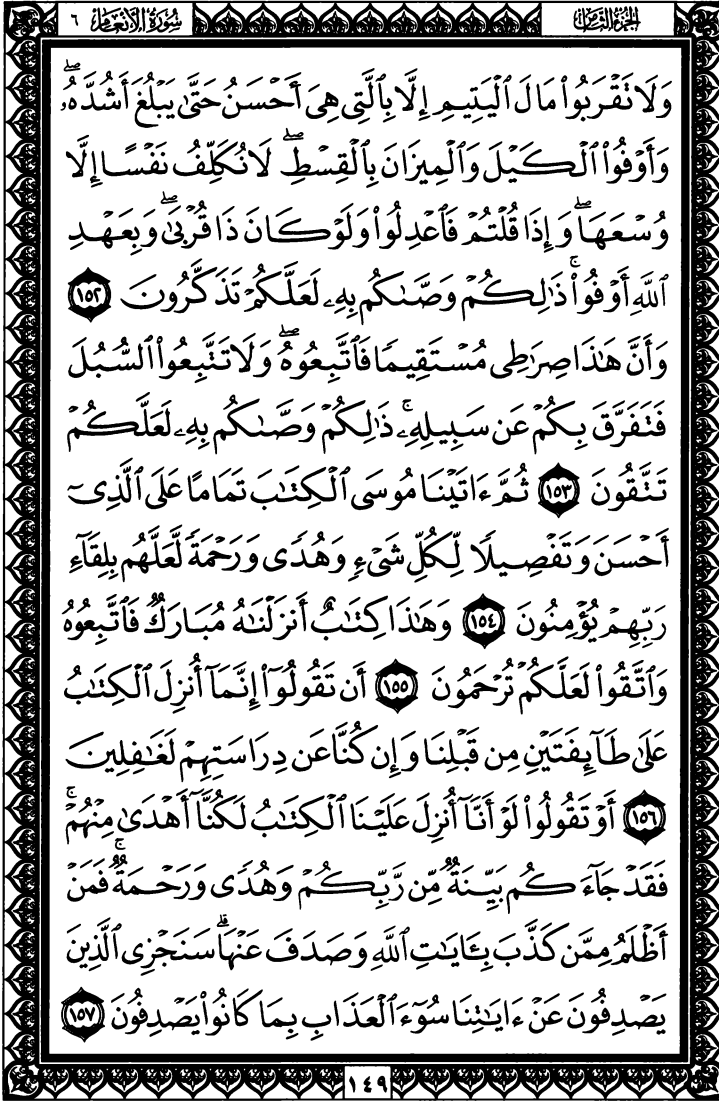 الجزء الثامن
سورة الأنعام ٦
وَلَا تَقْرَبُوا۟ مَالَ ٱلْيَتِيمِ إِلَّا بِٱلَّتِى هِىَ أَحْسَنُ حَتَّىٰ يَبْلُغَ أَشُدَّهُۥ ۖ
وَأَوْفُوا۟ ٱلْكَيْلَ وَٱلْمِيزَانَ بِٱلْقِسْطِ ۖ لَا نُكَلِّفُ نَفْسًا إِلَّا
وُسْعَهَا ۖ وَإِذَا قُلْتُمْ فَٱعْدِلُوا۟ وَلَوْ كَانَ ذَا قُرْبَىٰ ۖ وَبِعَهْدِ
ٱللَّهِ أَوْفُوا۟ ۚ ذَٰلِكُمْ وَصَّىٰكُم بِهِۦ لَعَلَّكُمْ تَذَكَّرُونَ ١٥٢
وَأَنَّ هَٰذَا صِرَٰطِى مُسْتَقِيمًا فَٱتَّبِعُوهُ ۖ وَلَا تَتَّبِعُوا۟ ٱلسُّبُلَ
فَتَفَرَّقَ بِكُمْ عَن سَبِيلِهِۦ ۚ ذَٰلِكُمْ وَصَّىٰكُم بِهِۦ لَعَلَّكُمْ
تَتَّقُونَ ١٥٣ ثُمَّ ءَاتَيْنَا مُوسَى ٱلْكِتَٰبَ تَمَامًا عَلَى ٱلَّذِىٓ
أَحْسَنَ وَتَفْصِيلًا لِّكُلِّ شَىْءٍ وَهُدًى وَرَحْمَةً لَّعَلَّهُم بِلِقَآءِ
رَبِّهِمْ يُؤْمِنُونَ ١٥٤ وَهَٰذَا كِتَٰبٌ أَنزَلْنَٰهُ مُبَارَكٌ فَٱتَّبِعُوهُ
وَٱتَّقُوا۟ لَعَلَّكُمْ تُرْحَمُونَ ١٥٥ أَن تَقُولُوٓا۟ إِنَّمَآ أُنزِلَ ٱلْكِتَٰبُ
عَلَىٰ طَآئِفَتَيْنِ مِن قَبْلِنَا وَإِن كُنَّا عَن دِرَاسَتِهِمْ لَغَٰفِلِينَ
١٥٦ أَوْ تَقُولُوا۟ لَوْ أَنَّآ أُنزِلَ عَلَيْنَا ٱلْكِتَٰبُ لَكُنَّآ أَهْدَىٰ مِنْهُمْ ۚ
فَقَدْ جَآءَكُم بَيِّنَةٌ مِّن رَّبِّكُمْ وَهُدًى وَرَحْمَةٌ ۚ فَمَنْ
أَظْلَمُ مِمَّن كَذَّبَ بِـَٔايَٰتِ ٱللَّهِ وَصَدَفَ عَنْهَا ۗ سَنَجْزِى ٱلَّذِينَ
يَصْدِفُونَ عَنْ ءَايَٰتِنَا سُوٓءَ ٱلْعَذَابِ بِمَا كَانُوا۟ يَصْدِفُونَ ١٥٧
١٤٩